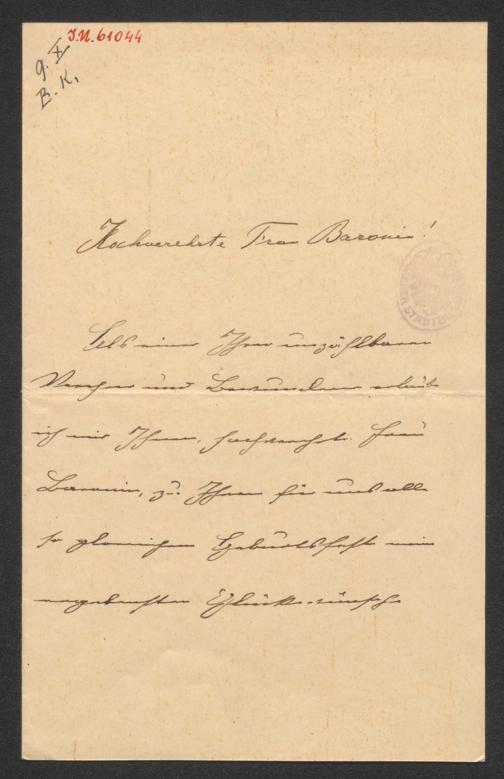 J.N. 61044
9. X
B. K.
Hochverehrte Frau Baronin!
Als einer Ihrer unzählbaren
Verehrer und Bewunderer erlaub
ich mir Ihnen, hochverehrte Frau
Baronin, zu Ihrem für uns alle
so glorreichen Geburtsfeste meine
ergebensten Glückwünsche